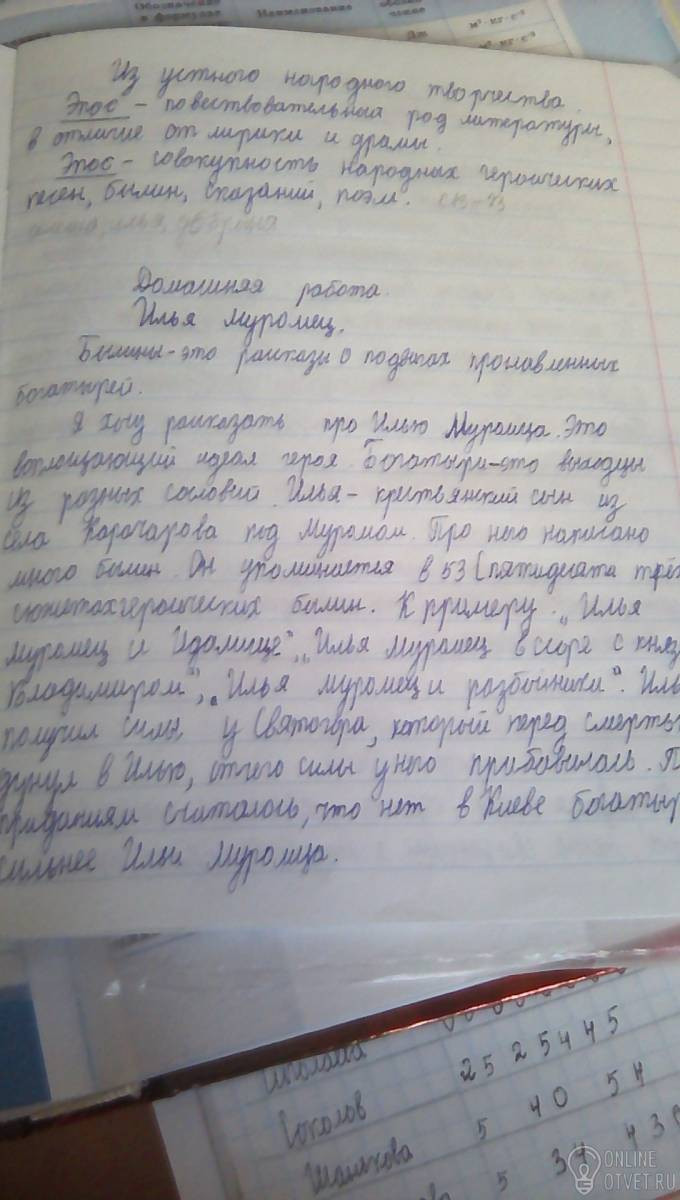 Обозначение
в формуле
Наименование
Дж
м²·кг·с⁻²
Из устного народного творчества.
Эпос – повествовательный род литературы,
в отличие от лирики и драмы.
Эпос – совокупность народных героических
песен, былин, сказаний, поэм.
Домашняя работа.
Илья Муромец.
Былины – это рассказы о подвигах прославленных
богатырей.
Я хочу рассказать про Илью Муромца. Это
воплощающий идеал героя. Богатыри – это выходцы
из разных сословий. Илья – крестьянский сын из
села Карачарова под Муромом. Про него написано
много былин. Он упоминается в 53 (пятидесяти трёх
сюжетах героических былин. К примеру „Илья
муромец и Идолище", „Илья муромец в ссоре с княз
Владимиром", „Илья муромец и разбойники". Иль
получил силы у Святогора, который перед смерть
дунул в Илью, отчего силы у него прибавилось. П
приданиям считалось, что нет в Киеве богатыр
сильнее Ильи Муромца.
2 5 2 5 4 4 5
Соколов 5 4 0 5 4
Шашкова 5 3 4 4 3
5
ONLINE
OTVET.RU